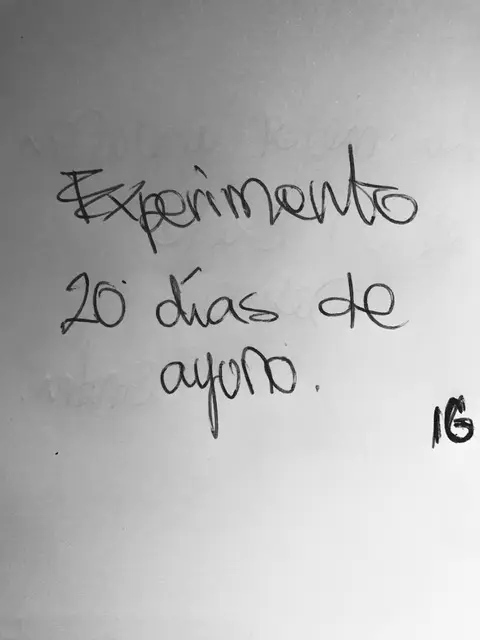 Experimento
20 días de
ayuno.
IG